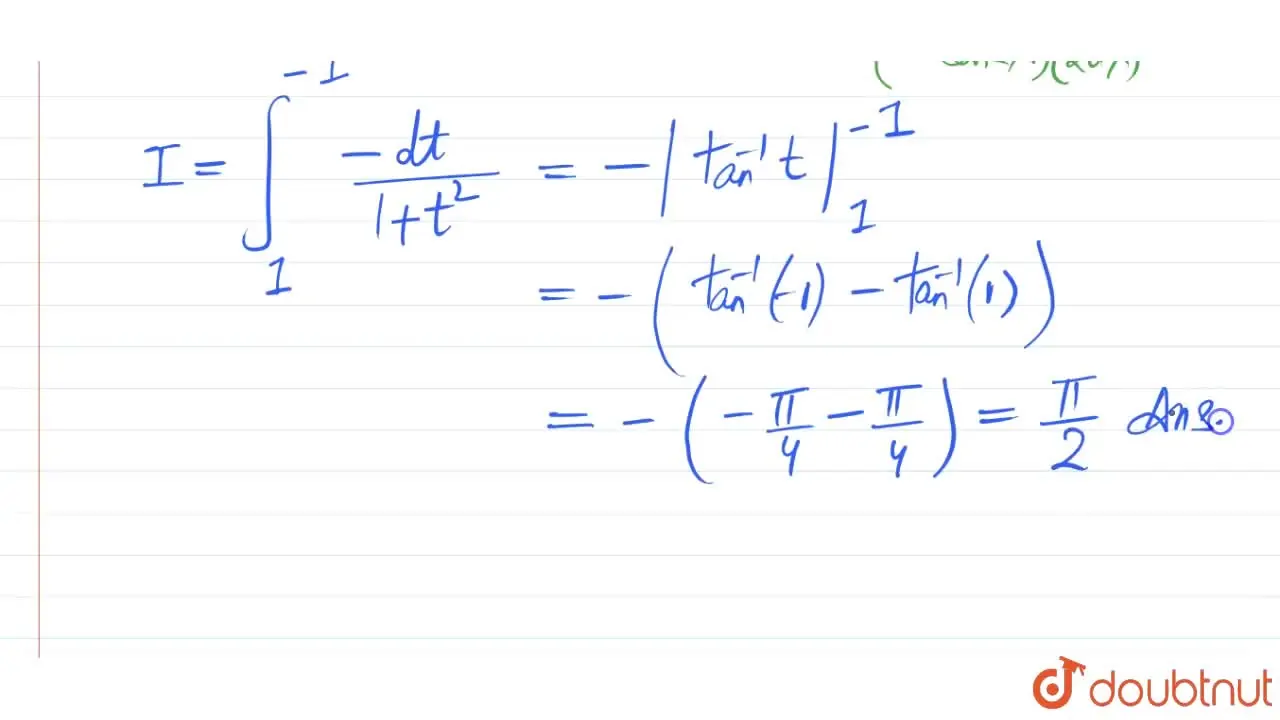 I = ∫₁⁻¹ -dt/(1+t²) = -| tan⁻¹ t |₁⁻¹
= -( tan⁻¹(-1) - tan⁻¹(1) )
= -( -π/4 - π/4 ) = π/2 Ans.
doubtnut